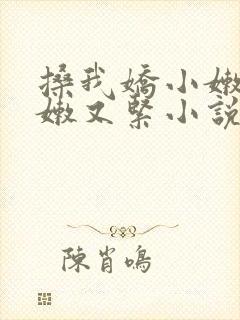 搡我嬌小嫩
嫩又緊小說
陳肖鳴